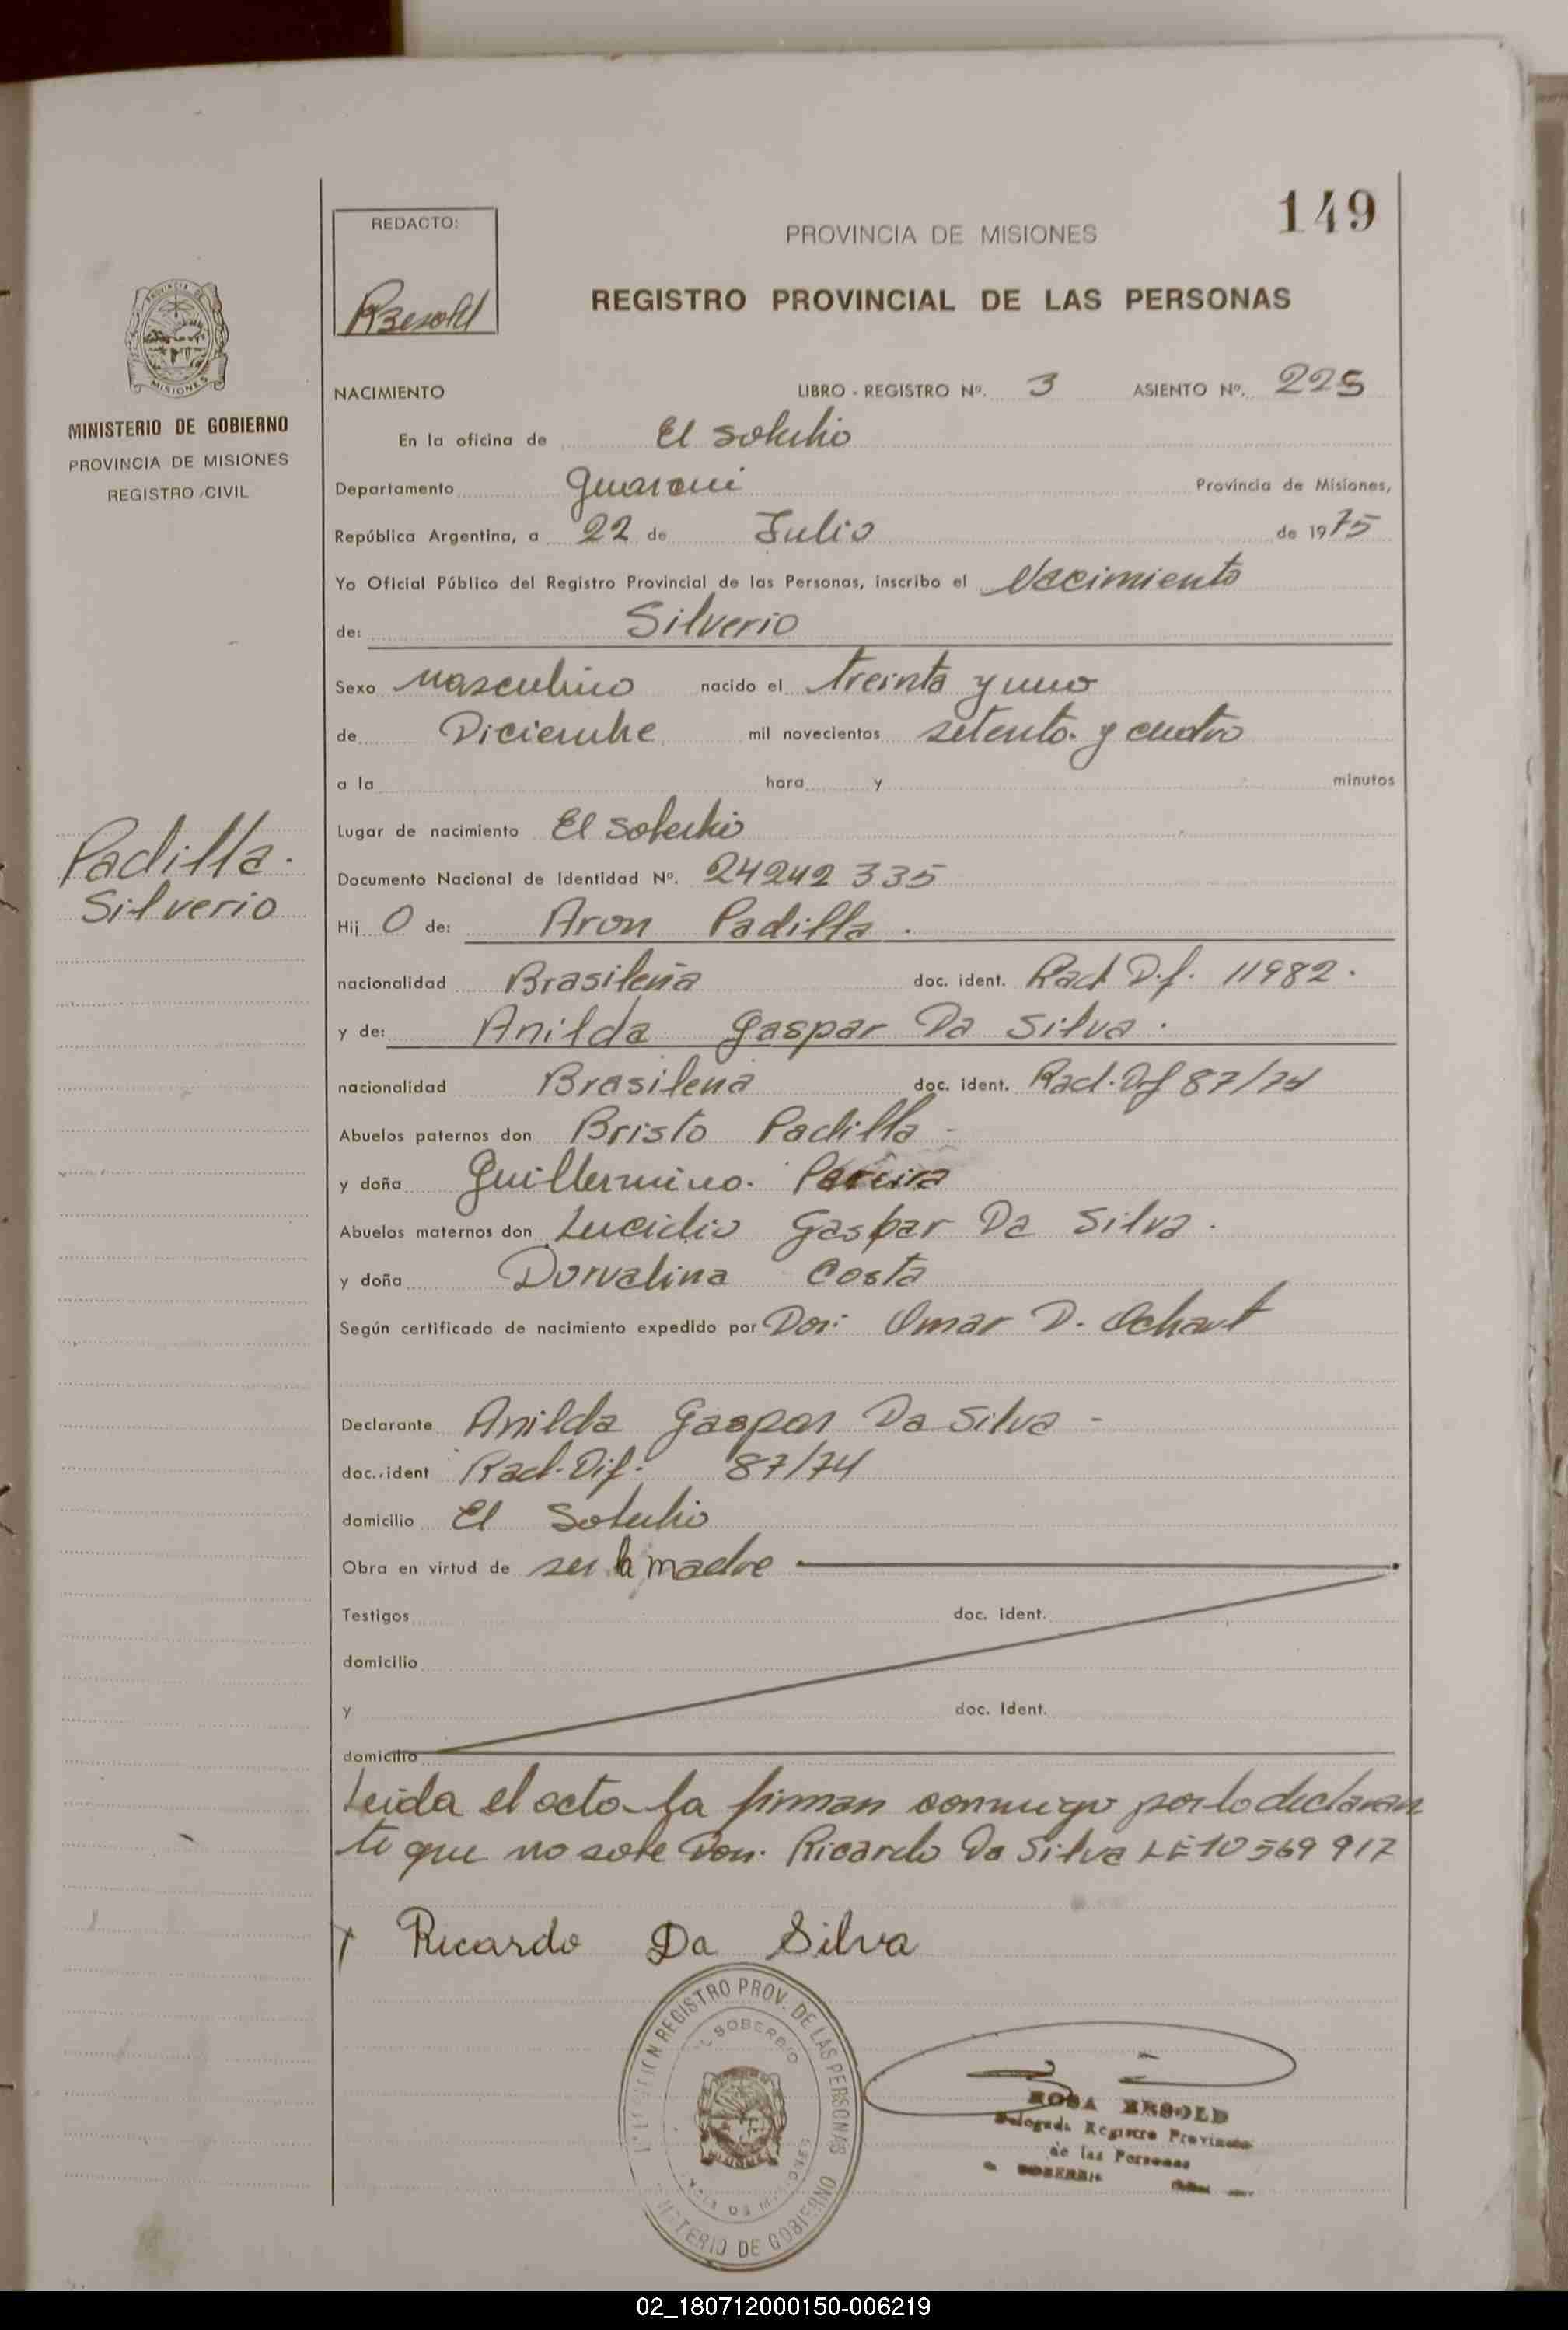 149
REDACTO:
PROVINCIA DE MISIONES
REGISTRO PROVINCIAL DE LAS PERSONAS
MISIONES
MINISTERIO DE GOBIERNO
PROVINCIA DE MISIONES
REGISTRO CIVIL
NACIMIENTO LIBRO - REGISTRO Nº. 3 ASIENTO Nº. 225
En la oficina de El Soberbio
Departamento Guarani Provincia de Misiones,
República Argentina, a 22 de Julio de 1975
Yo Oficial Público del Registro Provincial de las Personas, inscribo el Nacimiento
de: Silverio
Sexo masculino nacido el treinta y uno
de Diciembre mil novecientos setenta y cuatro
a la hora y minutos
Lugar de nacimiento El Soberbio
Documento Nacional de Identidad Nº. 24242335
Padilla.
Silverio
Hij O de: Aron Padilla.
nacionalidad Brasileña doc. ident. Rad. D.f. 11982.
y de: Anilda Gaspar Da Silva.
nacionalidad Brasilena doc. ident. Rad. Df 87/74
Abuelos paternos don Bristo Padilla -
y doña Guillermina. Pereira
Abuelos maternos don Lucidio Gaspar Da Silva.
y doña Dorvalina Costa
Según certificado de nacimiento expedido por Omar D.
Declarante Anilda Gaspar Da Silva -
doc. ident Rad. Dif. 87/74
domicilio El Soberbio
Obra en virtud de ser la madre
Testigos doc. ident.
domicilio
y doc. Ident.
domicilio
Leida el acta la firman conmigo por la declaran
te que no sabe Don. Ricardo Da Silva LE 10569917
Ricardo Da Silva
REGISTRO PROV. DE LAS PERSONAS
EL SOBERBIO
MINISTERIO DE GOBIERNO
ROSA BESOLD
Delegada Registro Provincial
de las Personas
SOBERBIO
02_180712000150-006219